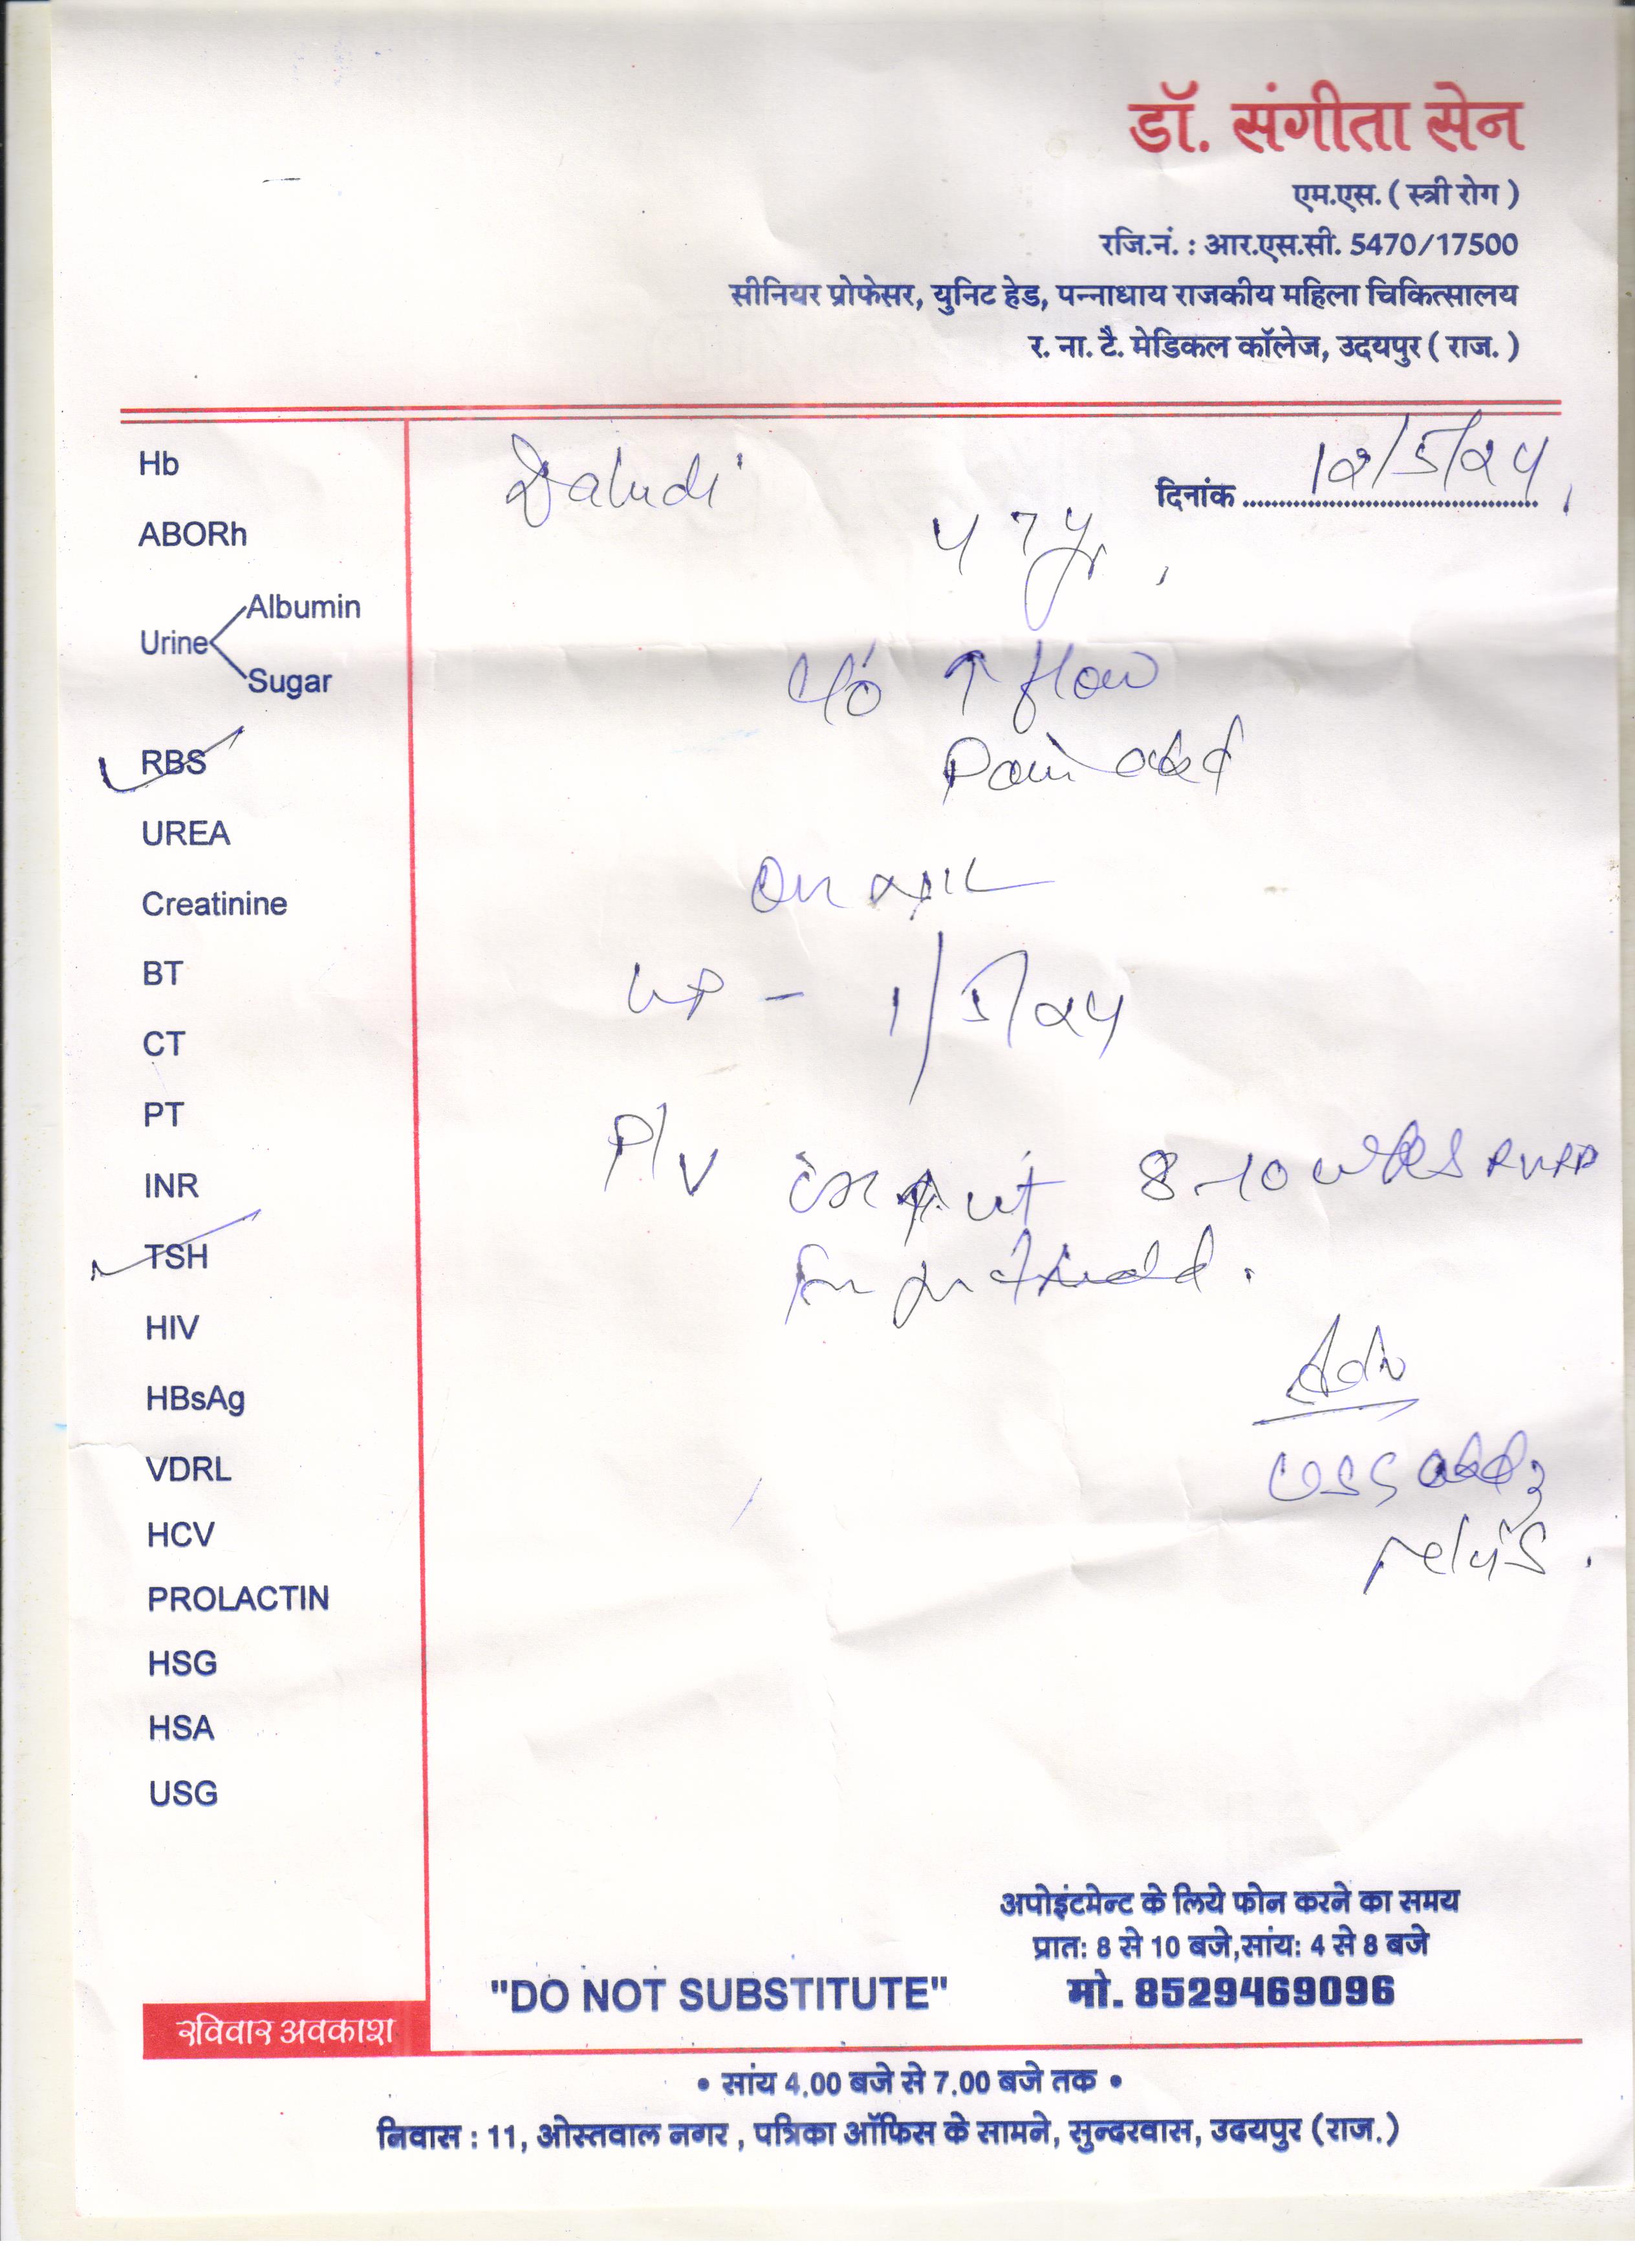 डॉ. संगीता सेन
एम.एस. ( स्त्री रोग )
रजि.नं. : आर.एस.सी. 5470/17500
सीनियर प्रोफेसर, युनिट हेड, पन्नाधाय राजकीय महिला चिकित्सालय
र. ना. टै. मेडिकल कॉलेज, उदयपुर ( राज. )
दिनांक 12/5/24
47 yr
Hb
ABORh
Urine
Albumin
Sugar
RBS
UREA
Creatinine
BT
CT
PT
INR
TSH
HIV
HBsAg
VDRL
HCV
PROLACTIN
HSG
HSA
USG
c/o ↑ flow
Pain abd
- 1/5/24
P/V ut 8-10 wks
Adv
USG abd
pelvis.
अपोइंटमेन्ट के लिये फोन करने का समय
प्रात: 8 से 10 बजे,सांय: 4 से 8 बजे
"DO NOT SUBSTITUTE" मो. 8529469096
रविवार अवकाश
• सांय 4.00 बजे से 7.00 बजे तक •
निवास : 11, ओस्तवाल नगर , पत्रिका ऑफिस के सामने, सुन्दरवास, उदयपुर (राज.)